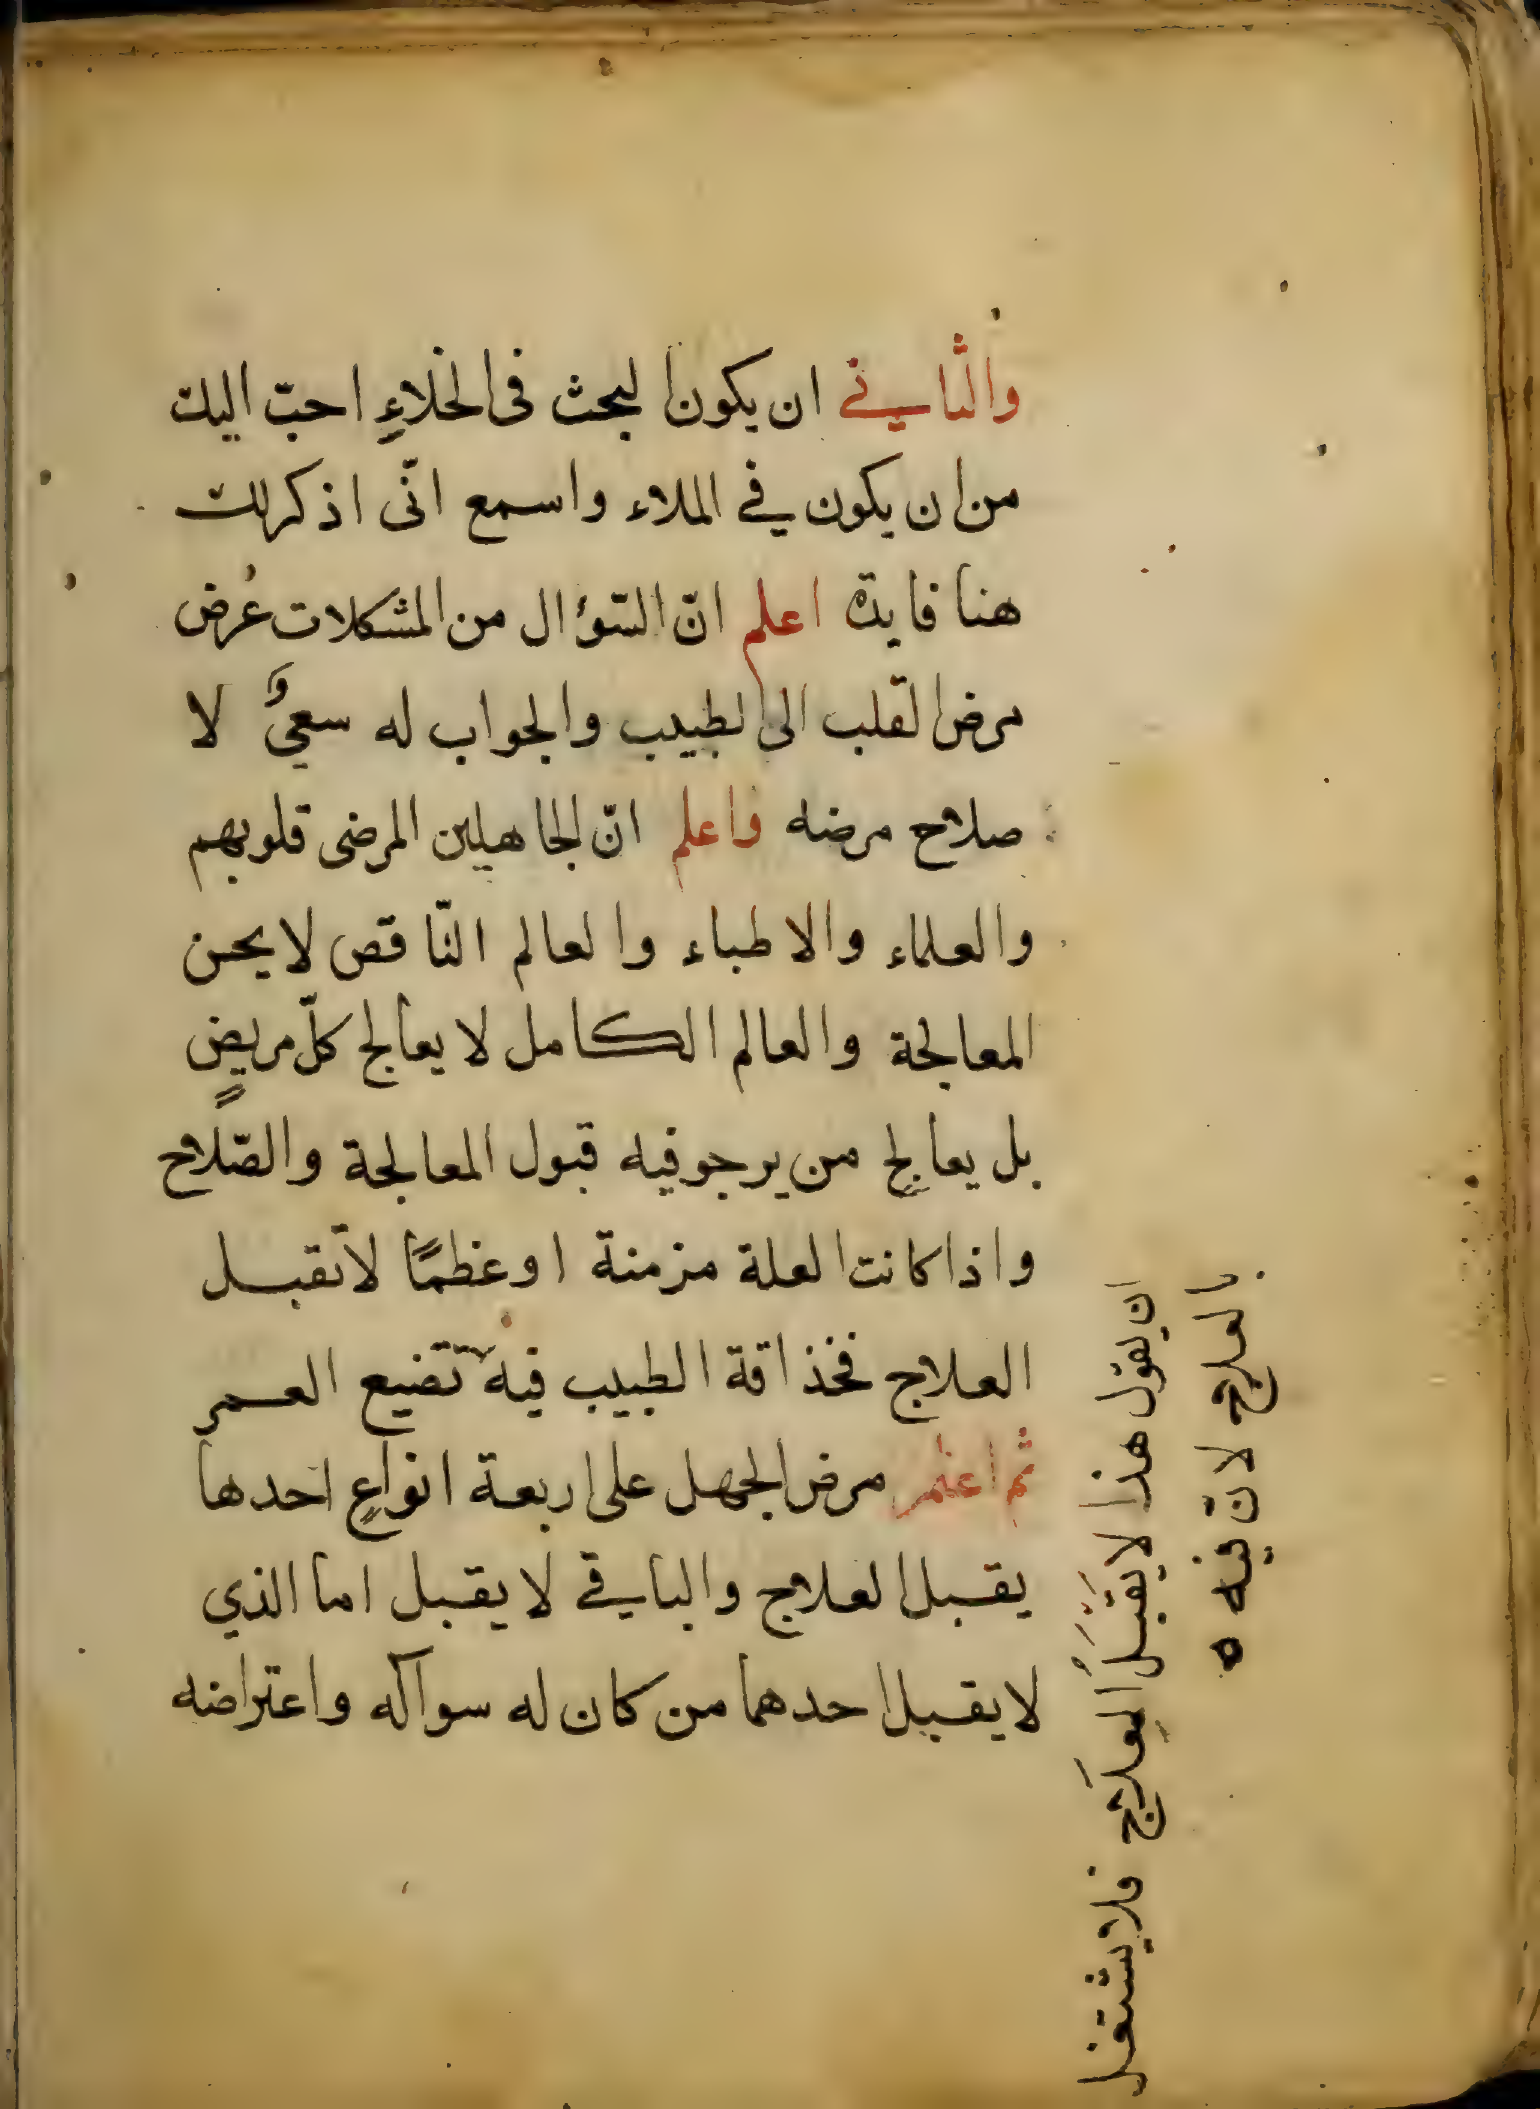 والثاني ان يكون البحث فى الخلاءِ احبّ اليك
من ان يكون في الملاء واسمع انّى اذكر لك
هنا فايدة اعلم انّ السّؤال من المشكلات عُرض
مرض القلب الى الطبيب والجواب له سعيٌ لا
صلاح مرضه واعلم انّ الجاهلين المرضى قلوبهم
والعلماء والاطباء والعالم النّاقص لا يحسن
المعالجة والعالم الكامل لا يعالج كلّ مريضٍ
بل يعالج من يرجو فيه قبول المعالجة والصّلاح
واذا كانت العلة مزمنة او عظمًا لا تقبل
العلاج فحذاقة الطبيب فيه تضيع العمر
ثم اعلم مرض الجهل على اربعة انواعٍ احدها
يقبل العلاج والباقي لا يقبل اما الذي
لا يقبل احدهما من كان له سواله واعتراضه
ان يقول هذا لا يَقْبَلُ العِلَاج فلا يشتغل
بالعلاج لانّ فيه